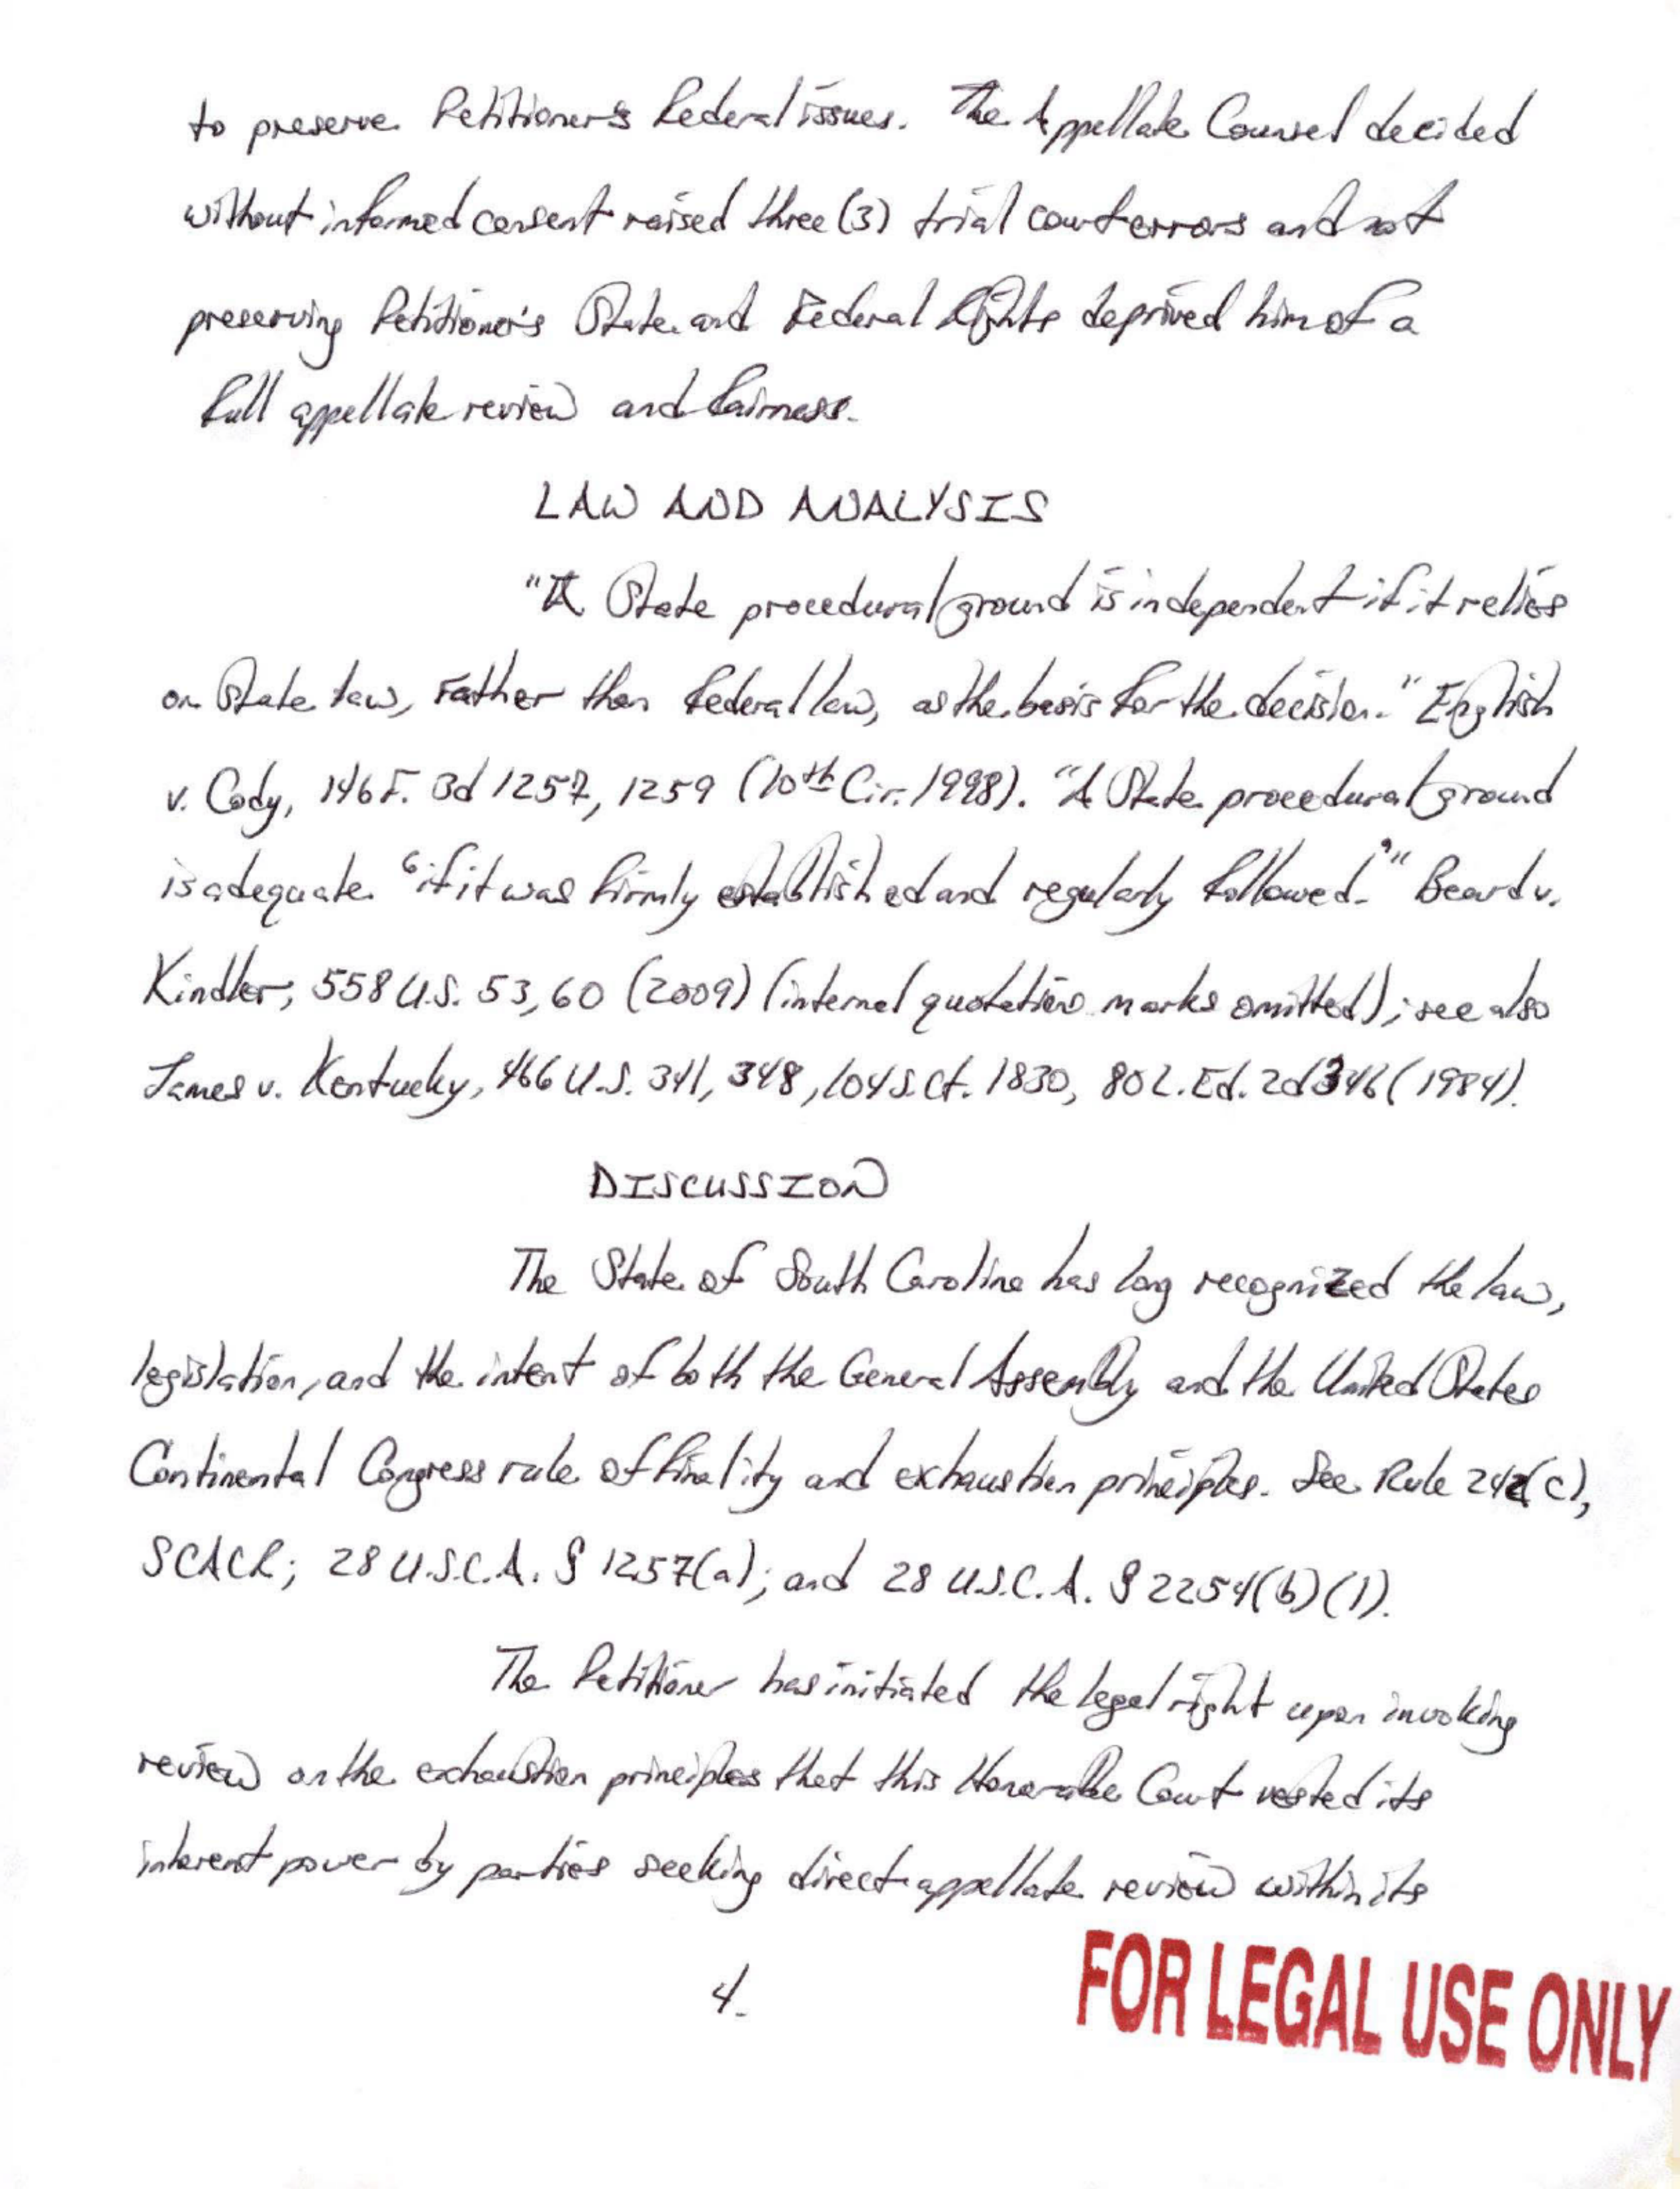 to preserve Petitioner's Federal issues. The Appellate Counsel decided
without informed consent raised three (3) trial court errors and not
preserving Petitioner's State and Federal Rights deprived him of a
full appellate review and fairness.
LAW AND ANALYSIS
"A State procedural ground is independent if it relies
on State law, rather than Federal law, as the basis for the decision." English
v. Cody, 146 F. 3d 1257, 1259 (10th Cir. 1998). "A State procedural ground
is adequate "if it was firmly established and regularly followed.'" Beard v.
Kindler, 558 U.S. 53, 60 (2009) (internal quotations marks omitted); see also
James v. Kentucky, 466 U.S. 341, 348, 104 S.Ct. 1830, 80 L.Ed. 2d 346 (1984).
DISCUSSION
The State of South Carolina has long recognized the law,
legislation, and the intent of both the General Assembly and the United States
Continental Congress rule of finality and exhaustion principles. See Rule 242(c),
SCACR; 28 U.S.C.A. § 1257(a); and 28 U.S.C.A. § 2254(b)(1).
The Petitioner has initiated the legal right upon invoking
review on the exhaustion principles that this Honorable Court vested its
inherent power by parties seeking direct appellate review within its
4.
FOR LEGAL USE ONLY